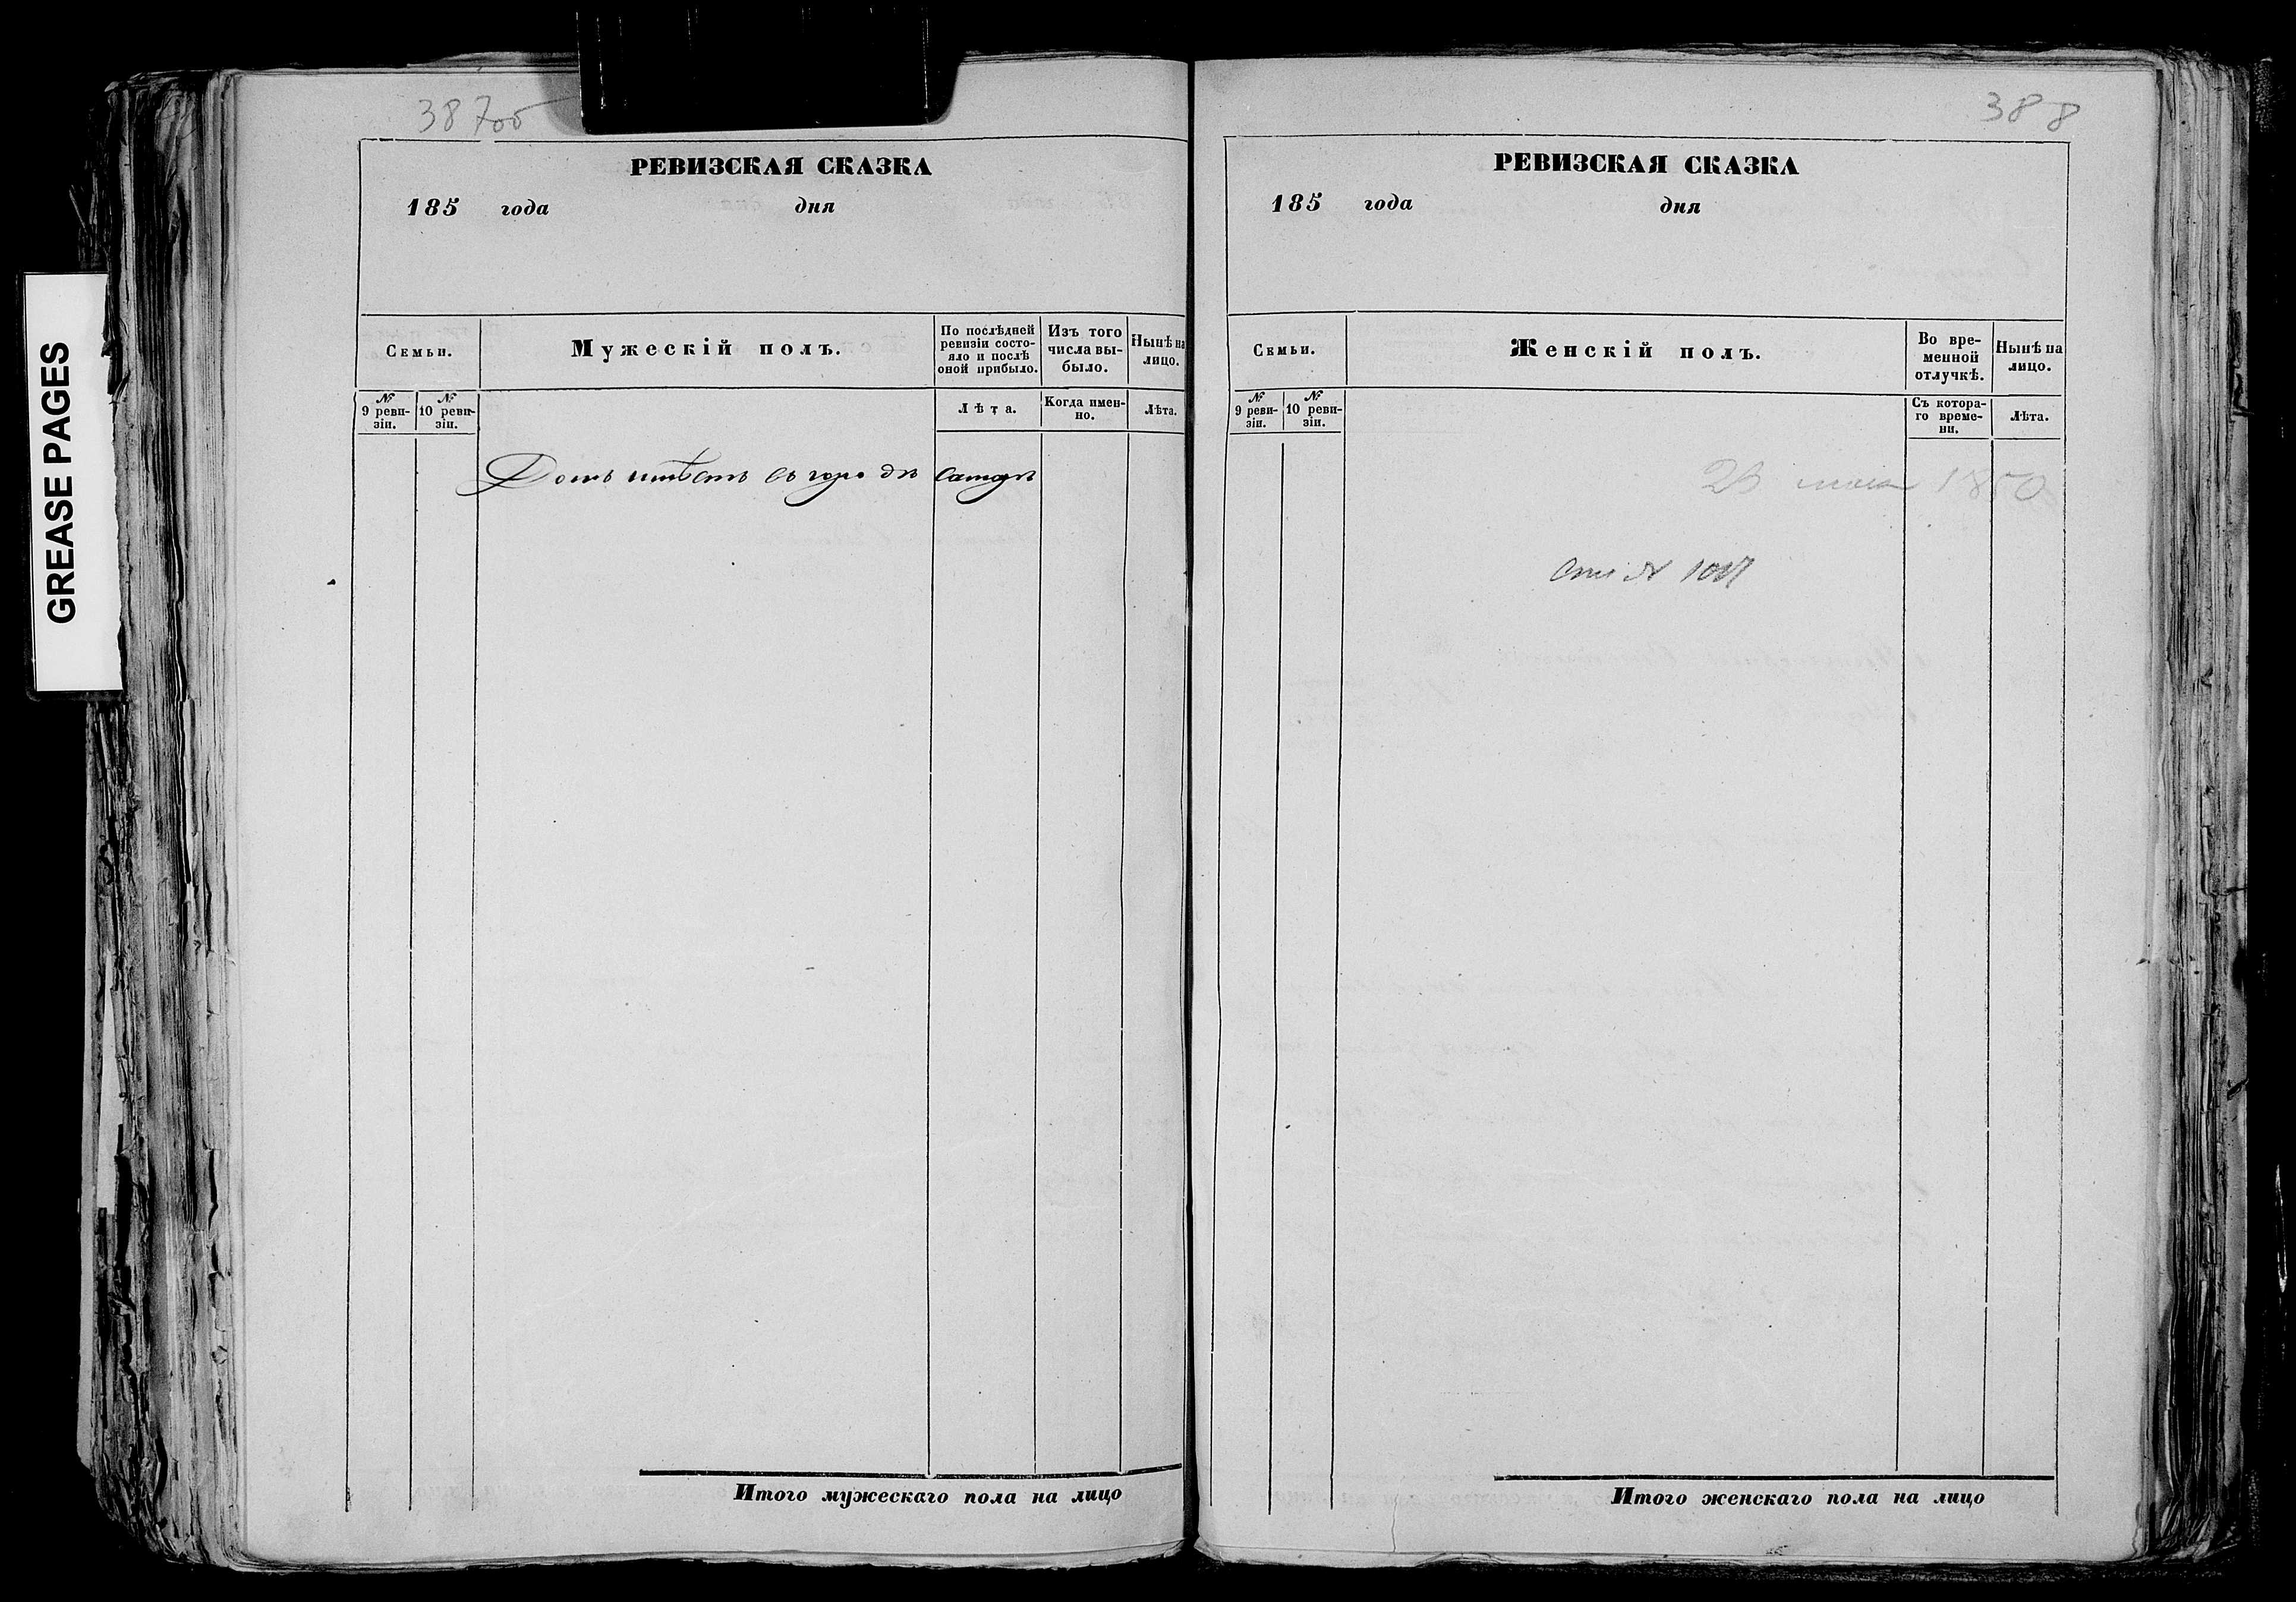 GREASE PAGES
387об
РЕВИЗСКАЯ СКАЗКА
185 года дня
Семьи.
Мужескій полъ.
По послѣдней ревизіи состо-
яло и послѣ
оной прибыло.
Изъ того
числа вы-
было.
Нынѣ на
лицо.
№
9 реви-
зіи.
№
10 реви-
зіи.
Лѣта.
Когда имен-
но.
Лѣта.
Домъ имѣетъ въ городѣ
Итого мужескаго пола на лицо
388
РЕВИЗСКАЯ СКАЗКА
185 года дня
Семьи.
Женскій полъ.
Во вре-
менной
отлучкѣ.
Нынѣ на
лицо.
№
9 реви-
зіи.
№
10 реви-
зіи.
Съ котора-
го време-
ни.
Лѣта.
мая 1850
Итого женскаго пола на лицо